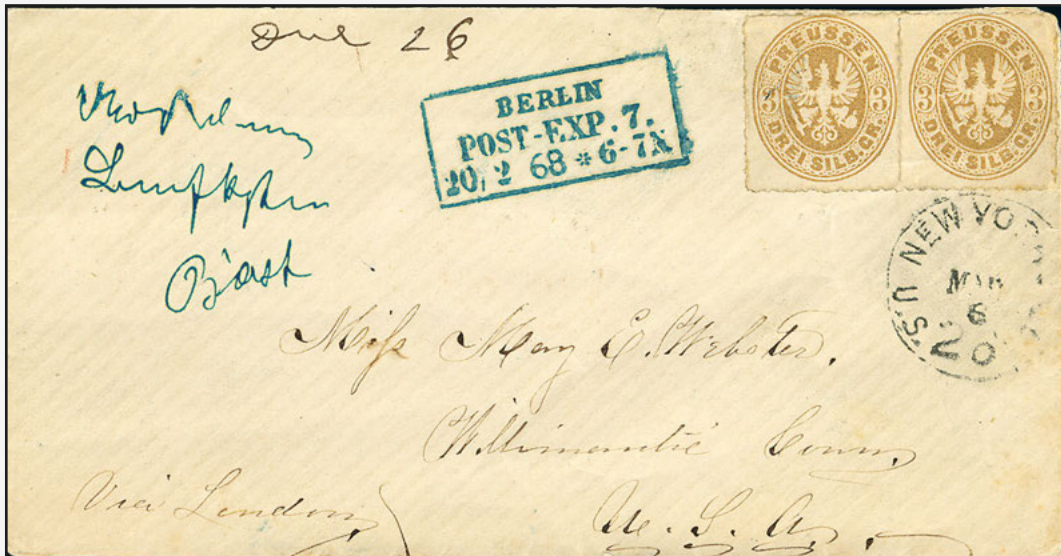 Due 26
BERLIN
POST-EXP. 7.
20, 2 68 * 6-7N
PREUSSEN
3 3
DREI SILB.GR.
PREUSSEN
3 3
DREI SILB.GR.
U.S. NEW YO
MAR
6
20
Miss May E. Webster.
Willimantic Conn,
Via London,
U. S. A.